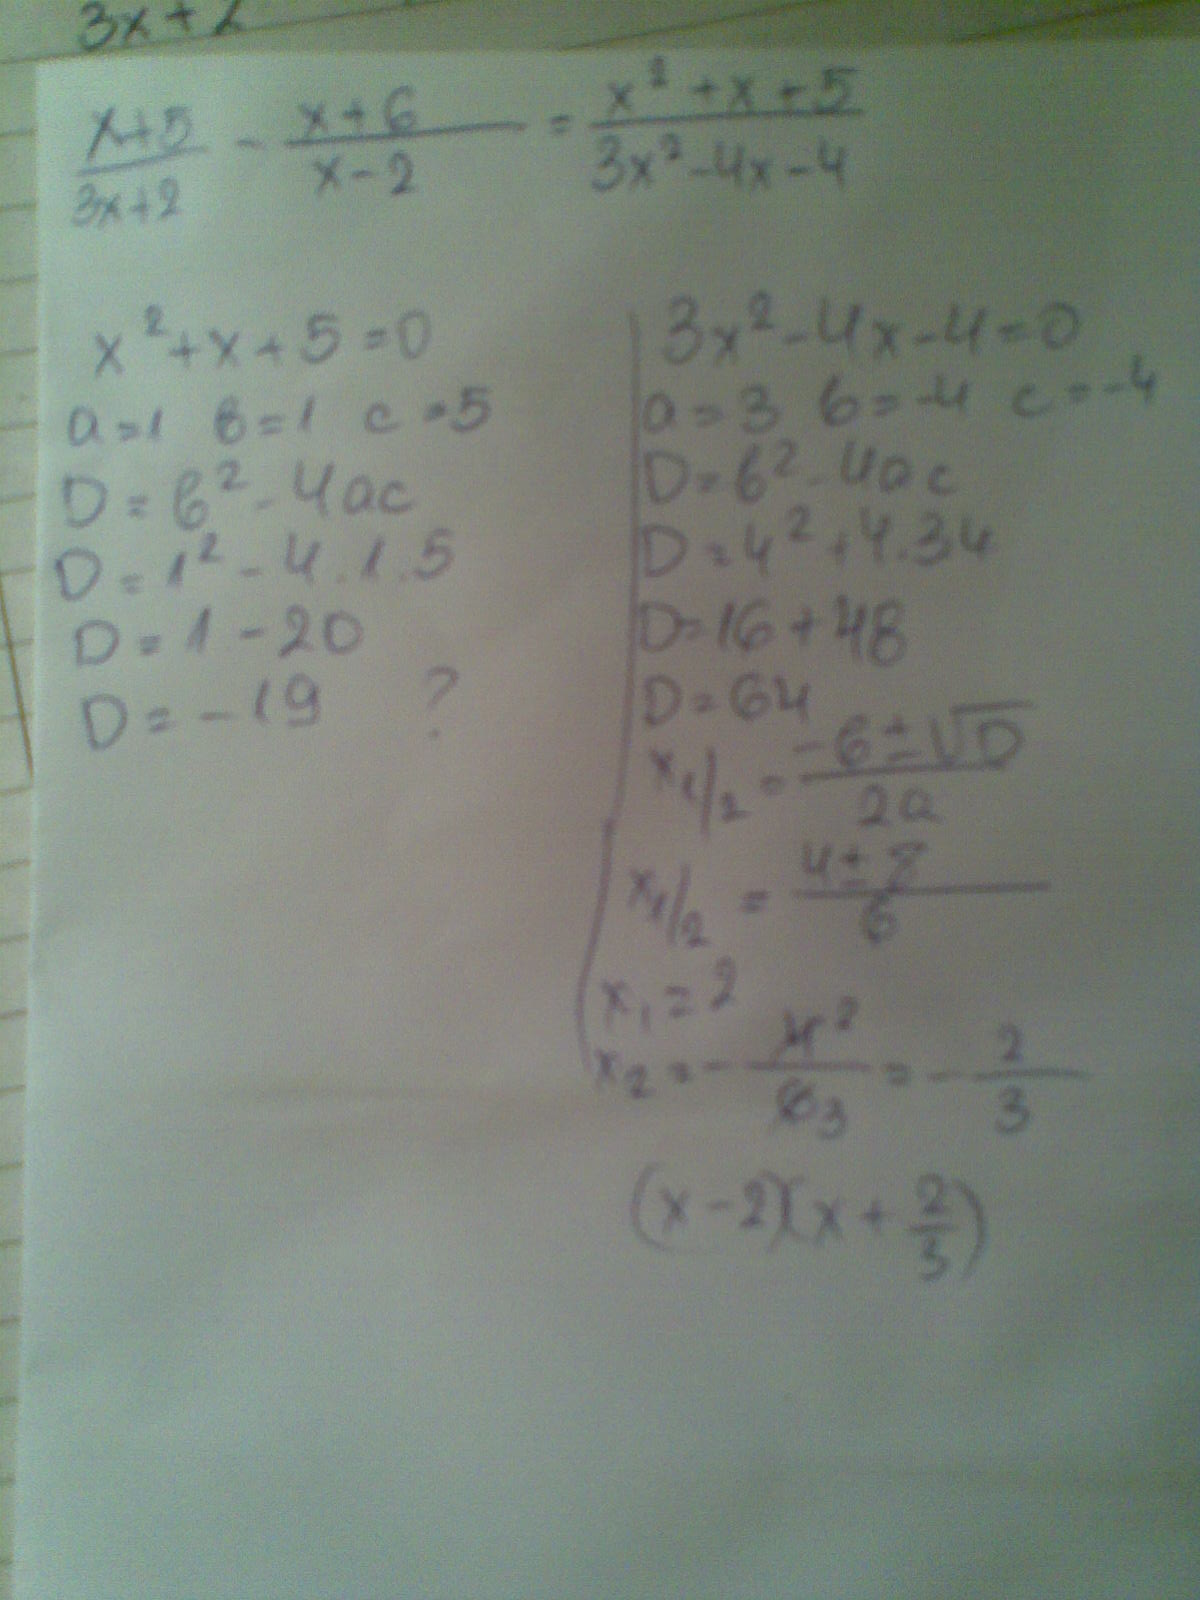 3x+2
x+5/3x+2 - x+6/x-2 = x²+x+5/3x²-4x-4
x²+x+5=0
a=1 в=1 c=5
D=в²-4ac
D=1²-4.1.5
D=1-20
D=-19 ?
3x²-4x-4=0
a=3 в=-4 c=-4
D=в²-4ac
D=4²+4.34
D=16+48
D=64
x1/2=-в±√D/2a
x1/2=4±8/6
x₁=2
x₂=-4²/6₃=-2/3
(x-2)(x+2/3)